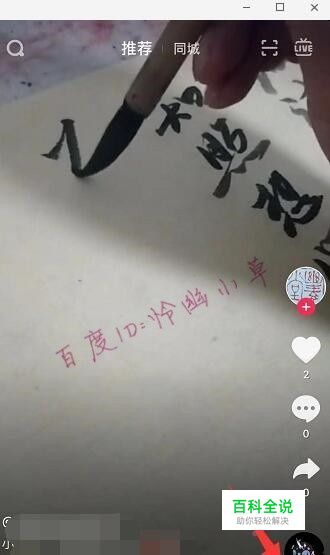 推荐 同城 LIVE
照
百度ID:怜幽小草
2
0
百科全说
助你轻松解决
@
小